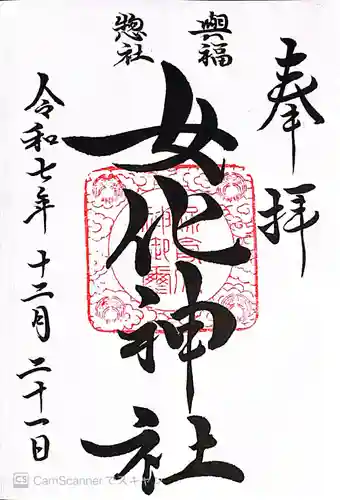 奉拝
興福
惣社
女化神社
令和七年 十二月 二十一日
CS CamScanner でスキャン